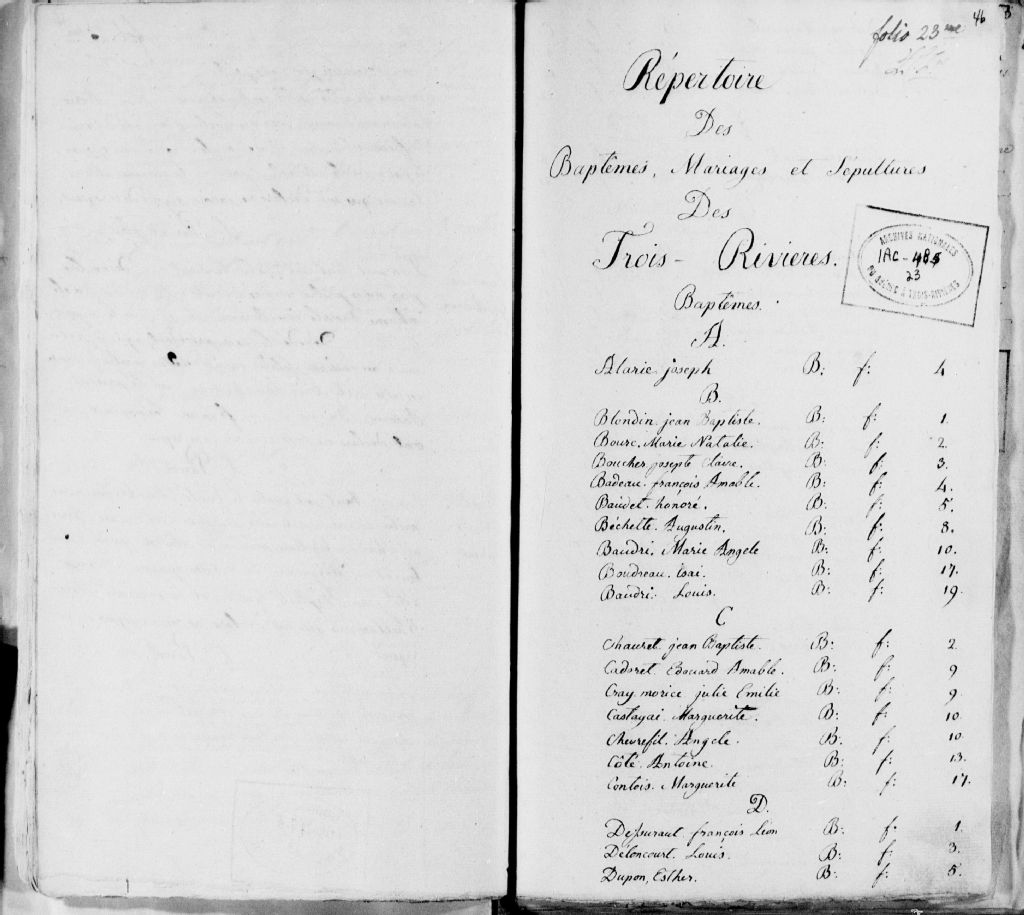 46
folio 23me
Répertoire
Des
Baptêmes, Mariages et Sépultures
Des
Trois-Rivieres.
ARCHIVES NATIONALES
1AC-485
23
DU QUÉBEC À TROIS-RIVIÈRES
Baptêmes.
A.
Alarie joseph B: f: 4
B.
Blondin jean Baptiste. B: f: 1.
Bourc. Marie Natalie. B: f: 2.
Boucher josepte Claire. B: f: 3.
Badeau. françois Amable. B: f: 4.
Baudet. honoré. B: f: 5.
Béchette. Augustin. B: f: 8.
Baudri. Marie Angele B: f: 10.
Boudreau. isai. B: f: 17.
Baudri. Louis. B: f: 19.
C
Chauret jean Baptiste. B: f: 2.
Cadoret. Edouard Amable. B: f: 9
Cray. morice julie Emilie B: f: 9.
Castagai. Marguerite. B: f: 10
Chevrefil. Angele. B. f: 10.
Côté. Antoine. B: f: 13.
Contois. Marguerite B: f: 17.
D.
françois Léon B: f: 1.
Déloncourt. Louis. B: f: 3.
Dupon, Esther. B: f: 5.